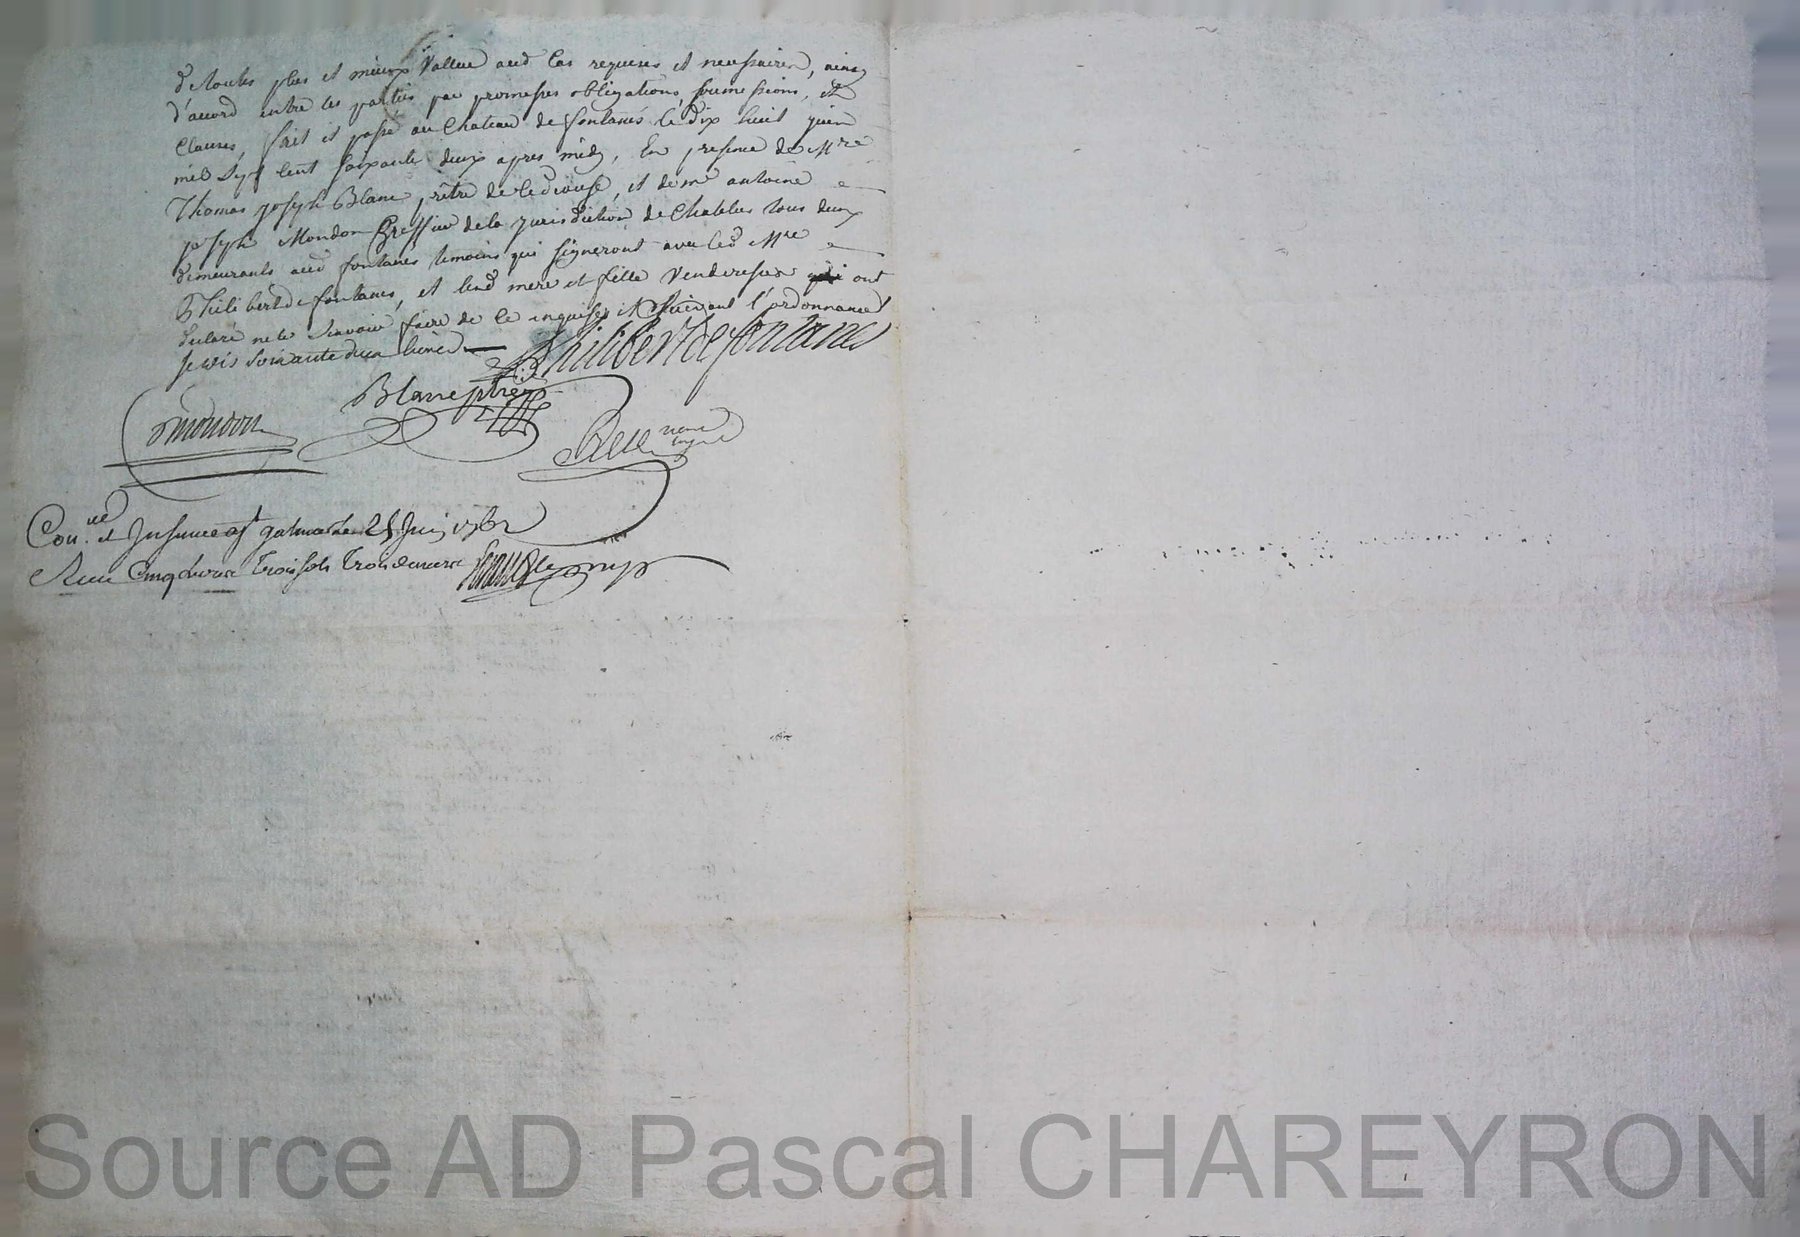 de toutes plus et mieux Vallue aud Cas requises et necessaires, ainsy
d'accord entre les parties par promesses obligations, soumissions, et
Clauses, fait et passé au Chateau de fontanes le dix huit juin
mil Sept Cent soixante deux apres midy, En presence de Mre
Thomas joseph Blanc prêtre de , et de me antoine
joseph Mondon Greffier de la jurisdiction de Chablas tous deux
demeurants aud fontanes temoins qui signeront avec led Mre
Philibert de fontanes, et lesd mere et fille Venderesses qui ont
declaré ne le scavoir faire de ce enquises et Suivant l'ordonnance
soixante deux livres
Philibert de fontanes
Blanc ptre
Mondon
nore
Con.le et Insinué a st galmier le 25 Juin 1762
Reçu Cinq livres Trois sols Trois deniers
Source AD Pascal CHAREYRON